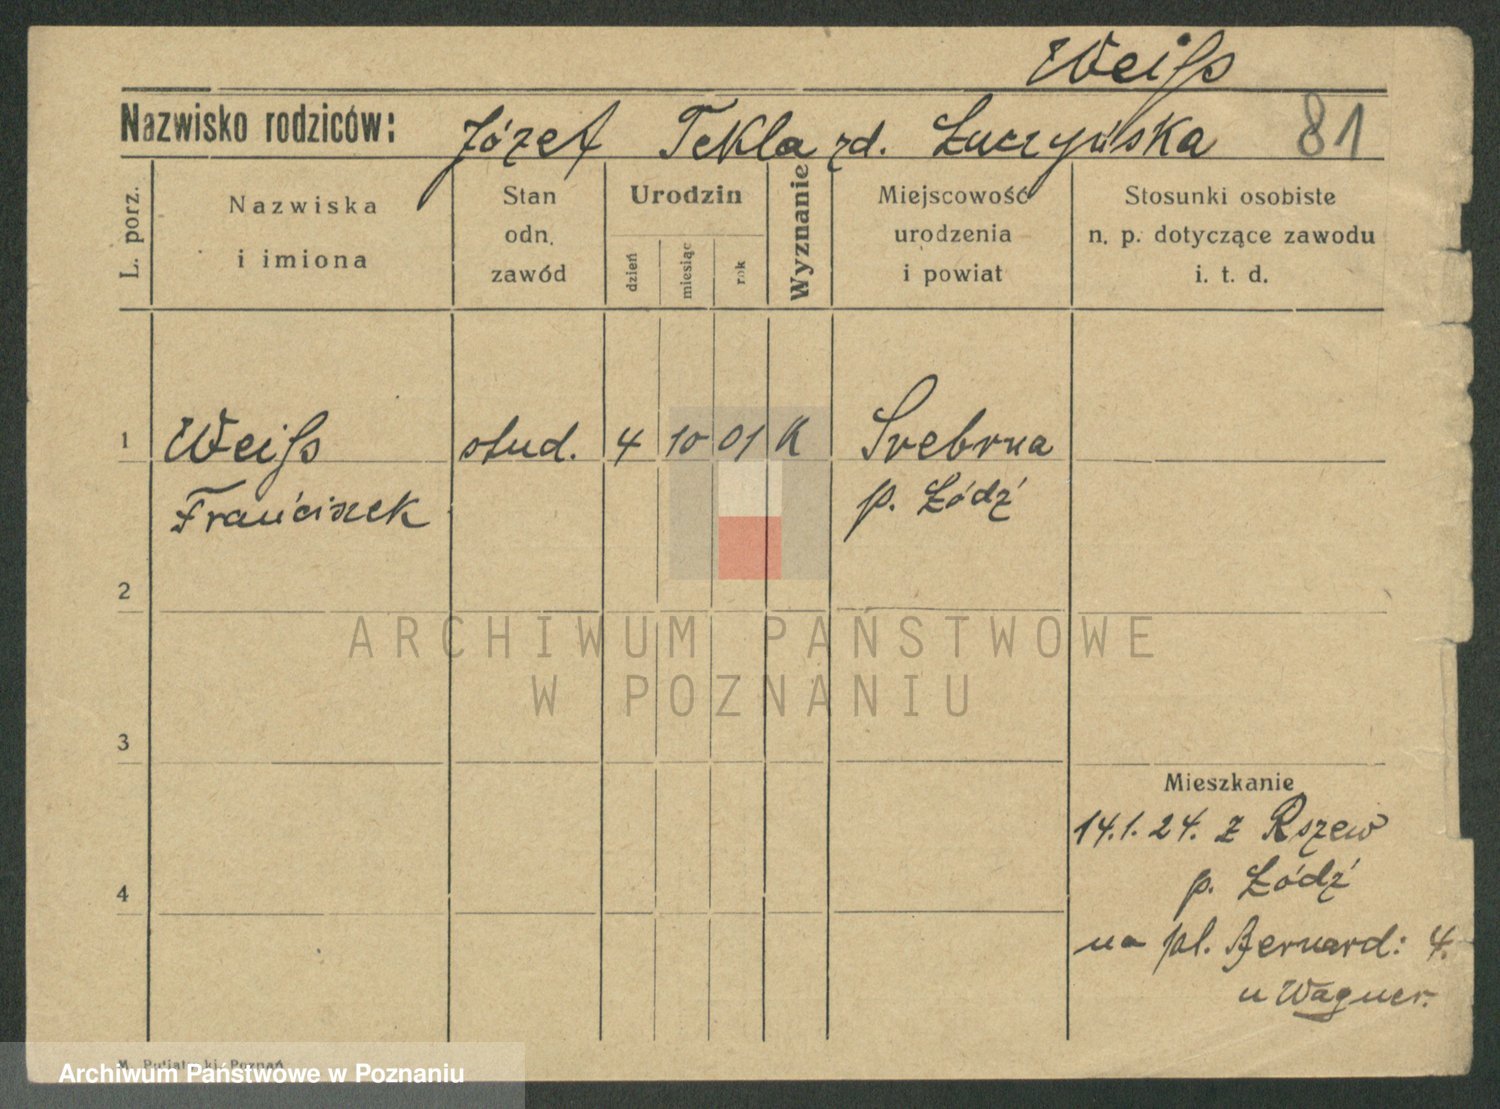 Weiſs
Nazwisko rodziców: Józef Tekla zd. Łuczyńska 81
L. porz.
Nazwiska
i imiona
Stan
odn.
zawód
Urodzin
dzień
miesiąc
rok
Wyznanie
Miejscowość
urodzenia
i powiat
Stosunki osobiste
n. p. dotyczące zawodu
i. t. d.
1 Weiſs stud. 4 10 01 K Srebrna
Franciszek p. Łódź
2
3
Mieszkanie
14.1.24. z Rszew
p. Łódź
4
na pl. Bernard: 4.
u Wagner.
ARCHIWUM PAŃSTWOWE
W POZNANIU
Poznań
Archiwum Państwowe w Poznaniu